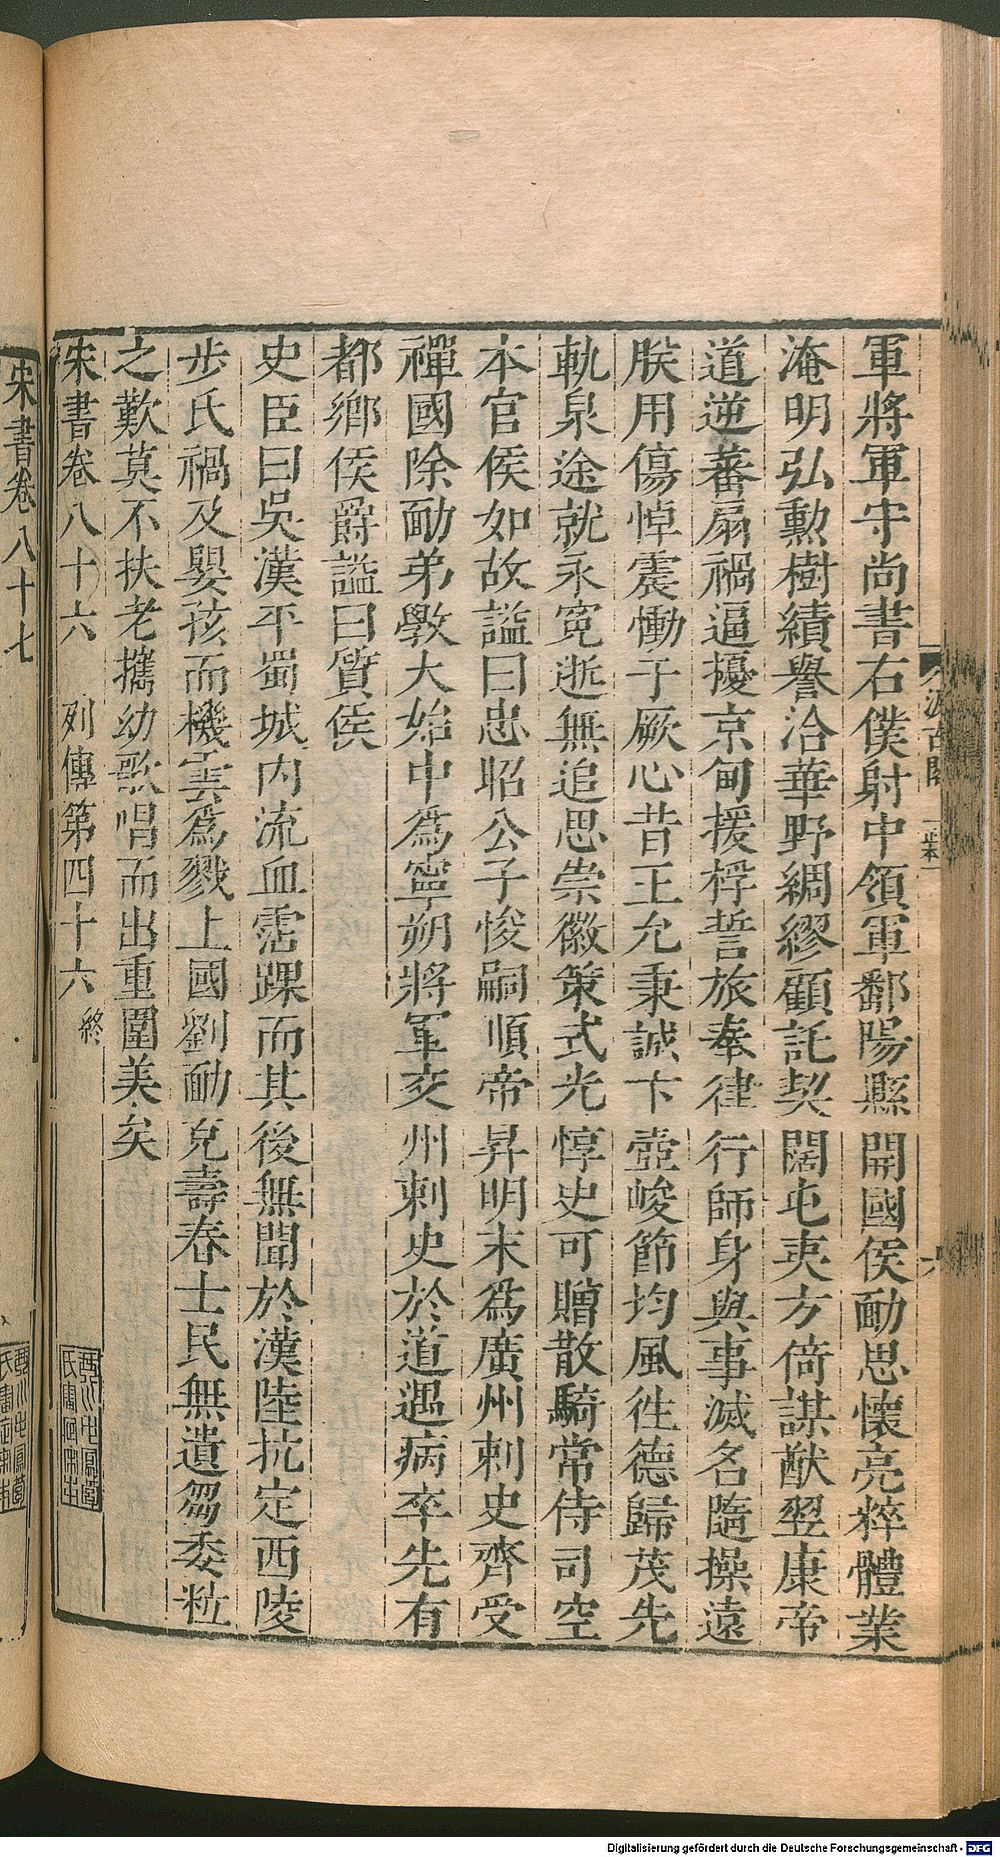 軍將軍守尚書右僕射中領軍鄱陽縣開國侯勔思懷亮粹體業
淹明弘勲樹績譽洽華野綢繆顧託契闊屯夷方倚謀猷翌康帝
道逆蕃扇禍逼擾京甸援桴誓旅奉律行師身與事滅名隨操遠
朕用傷悼震慟于厥心昔王允秉誠卞壼峻節均風往德歸茂先
軌泉途就永寃逝無追思崇徽策式光惇史可贈散騎常侍司空
本官侯如故謚曰忠昭公子悛嗣順帝昇明末爲廣州刺史齊受
禪國除勔弟斆大始中爲寧朔將軍交州刺史於道遇病卒先有
都鄉侯爵謚曰質侯
史臣曰吳漢平蜀城内流血霑踝而其後無聞於漢陸抗定西陵
步氏禍及嬰孩而機雲爲戮上國劉勔克壽春士民無遺芻委粒
之歎莫不扶老攜幼歌唱而出重圍美矣
宋書卷八十六 列傳第四十六 終
宋書卷八十七
Digitalisierung gefördert durch die Deutsche Forschungsgemeinschaft - DFG